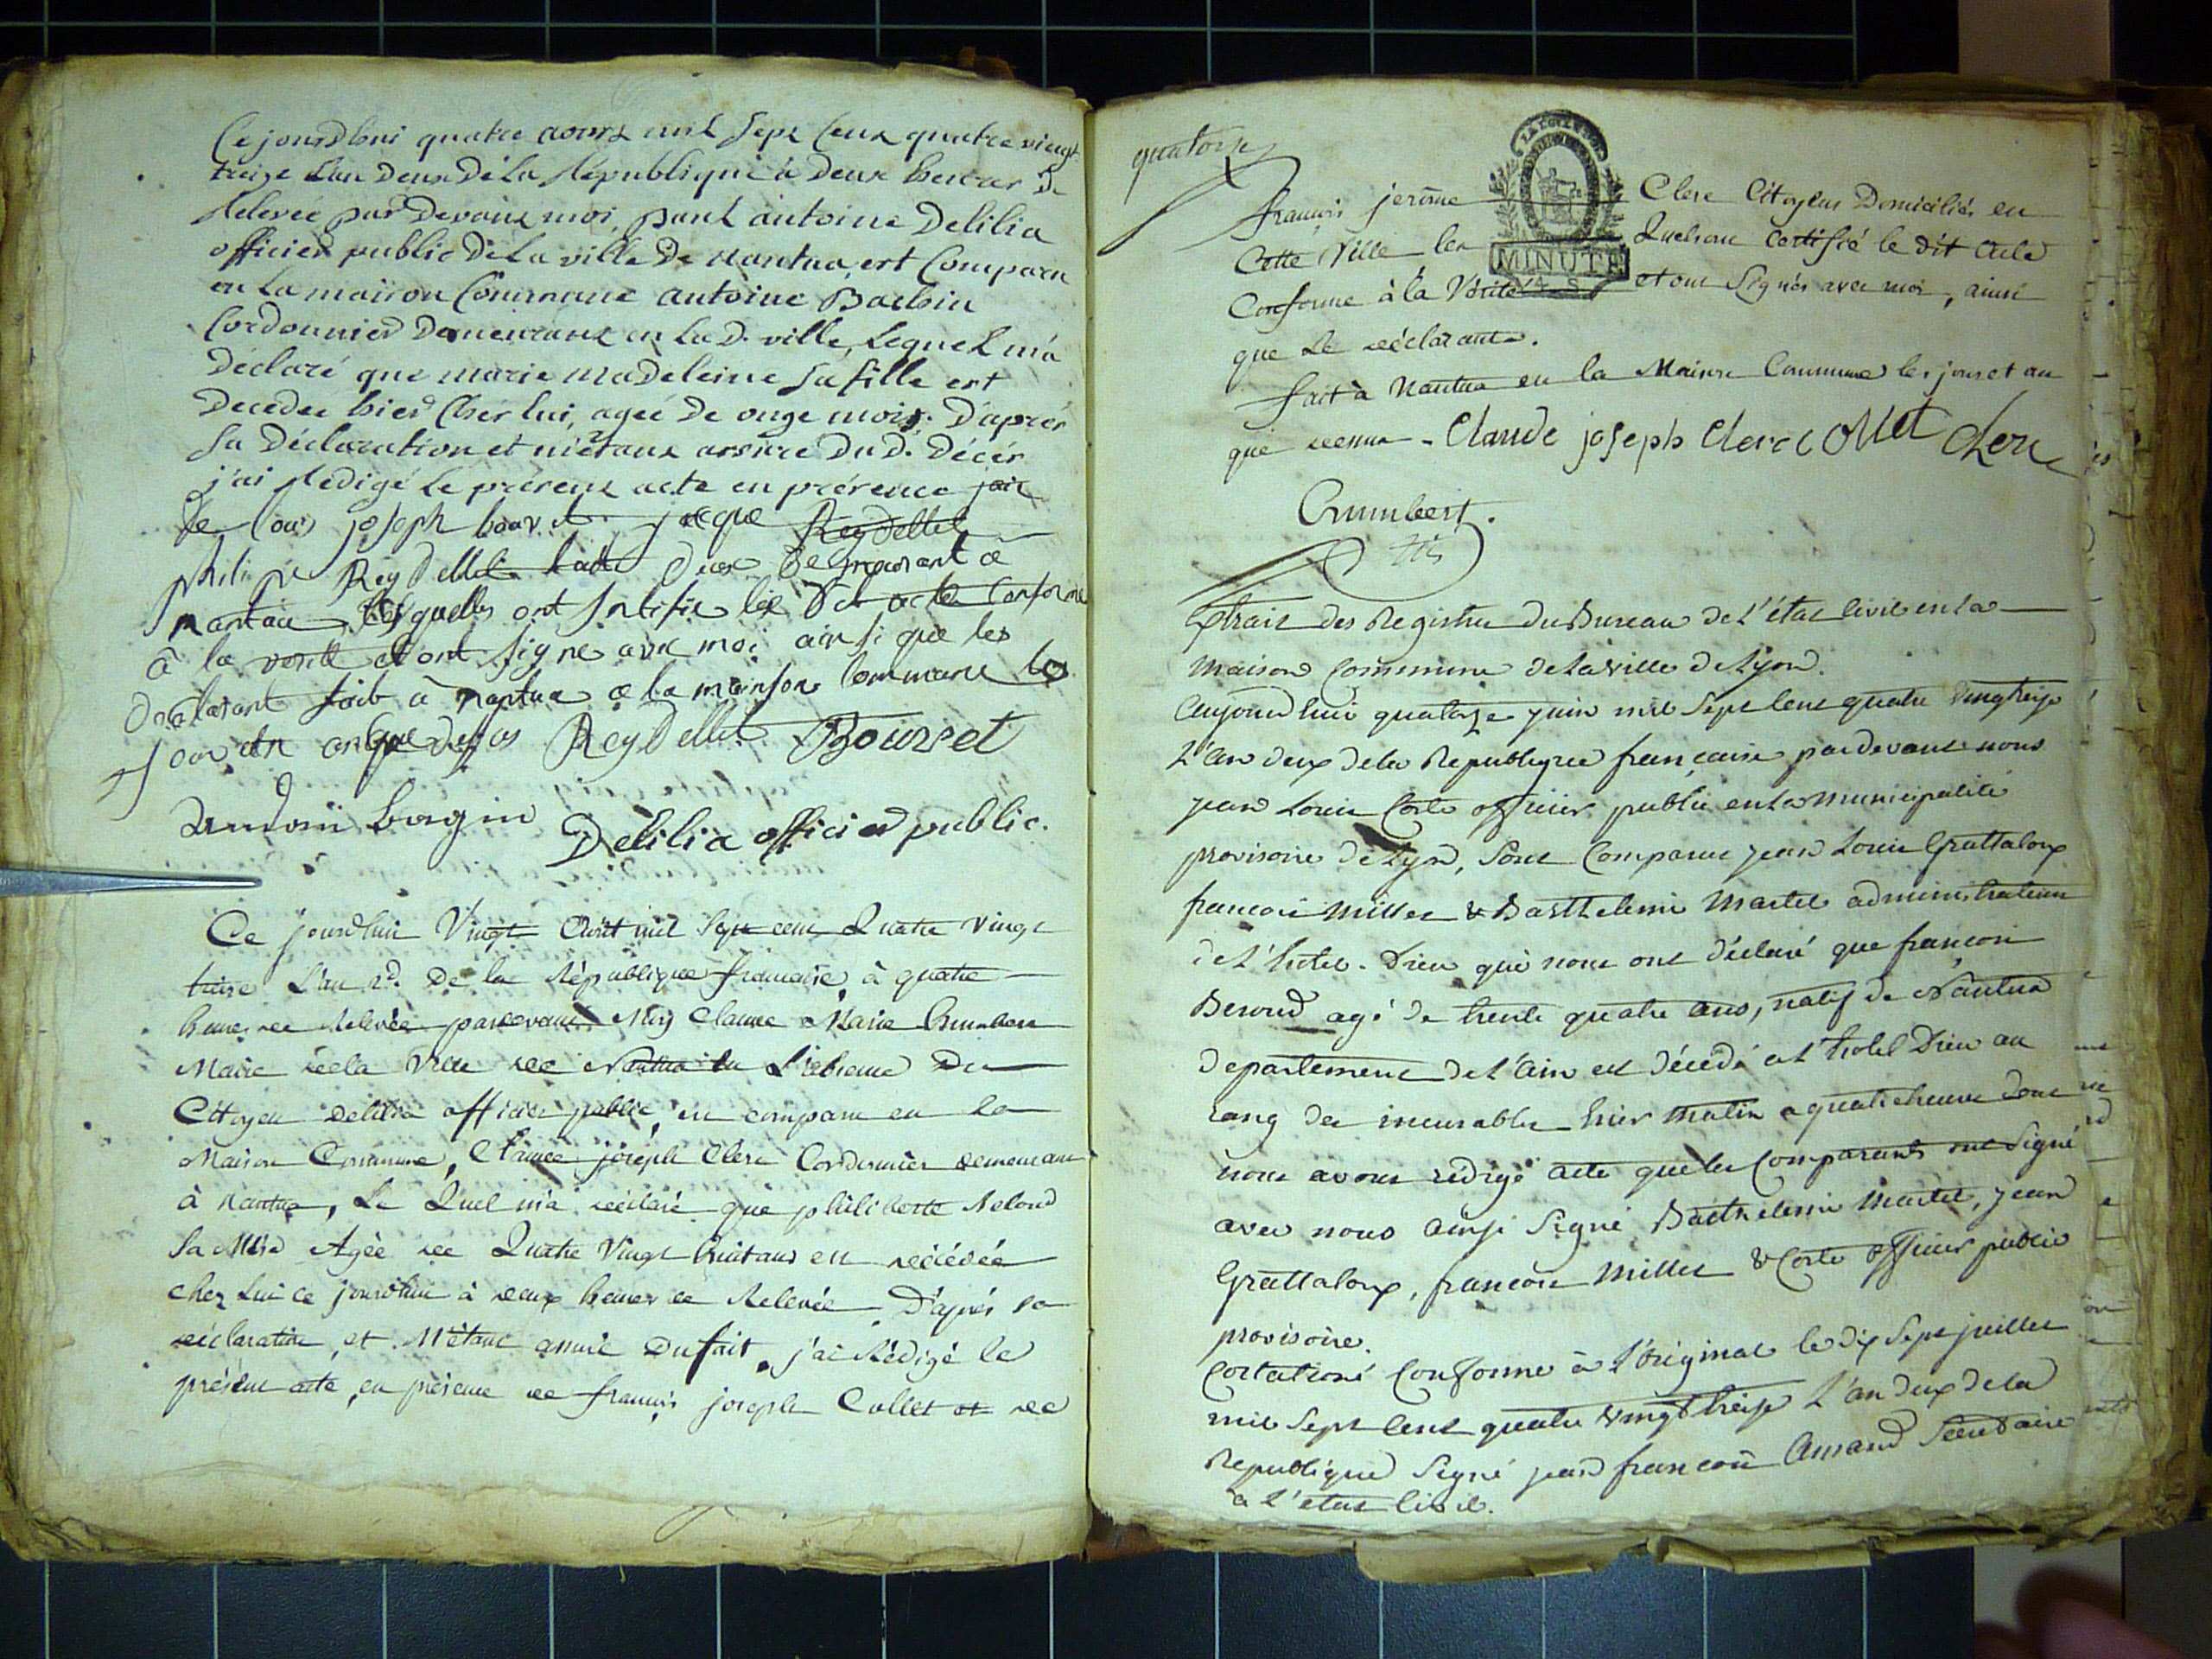 Ce jourdhui quatre aoust mil sept cent quatre vingt
treize L'an deux de La République à deux heures de
relevée par devant moi, paul antoine Delilia
officier public de La ville de nantua, est Comparu
en La maison Commune antoine Barbin
Cordonnier demeurant en La d. ville, Lequel m'a
déclaré que marie madeleine sa fille est
decedée hier Chés lui, agée de onze mois. D'après
sa déclaration et m'étant assuré du d. décès
j'ai Redigé Le présent acte en présence
de Louis joseph jacque Reydellet
philipe Reydellet demeurant a
nantua lesquelles ont sertifié le dit acte Conforme
à la verité et ont signé avec moi ainsi que les
declarant fait à nantua a la maison commune les
jour et an que dessus Reydellet Bourret
Delilia officier public.
Ce jourdhui Vingt Août mil Sept cent Quatre vingt
treize L'an 2d. De la République francaise, à quatre
heures de Relevée pardevant Moy Claude Marie
Maire de la Ville de Nantua en L'absence Du
Citoyen Delilia officier public, est comparu en la
Maison Commune, Claude joseph Clerc Cordonnier demeurant
à Nantua, Le Quel m'a déclaré que philiberte
Sa Mère Agée de Quatre Vingt huit ans est décédée
chez Lui ce jourdhui à deux heures de Relevée. D'après sa
déclaration, et M'étant assuré du fait, j'ai Rédigé le
présent acte, en présence de francois joseph Collet et de
quatorze
francois jerôme Clerc Citoyens Domiciliés en
Cette Ville les Quels ont Certifié le dit Acte
MINUTE
Conforme à la Vérité et ont Signés avec moi, ainsi
que le déclarant.
fait à Nantua en la Maison Commune les jour et an
que dessus - Claude joseph Clerc Collet Clerc
Extrait des Registre du Bureau de l'état Civil en la
maison Commune de la ville de Lyon.
aujourd'hui quatorze juin mil Sept Cent quatre Vingt treize
L'an deux de la Republique française pardevant nous
jean Louis Corte officier public en la municipalité
provisoire de Lyon, Sont Comparus jean Louis Grattaloup
francois Millet & Barthelemi Martel administrateurs
de l'hotel-Dieu qui nous ont déclaré que francois
Beroud agé de trente quatre ans, natif de Nantua
departement de l'ain est décédé a l'hotel Dieu au
rang des incurables hier matin a quatre heures dont
nous avons rédigé acte que les comparants ont Signé
avec nous ainsi Signé Barthelemi Martel, jean
Grattaloup, francois Millet & Corte officier public
provisoire.
Collationé Conforme à l'original le dix Sept juillet
mil Sept Cent quatre Vingt treize L'an deux de la
Republique Signé jean francois Amand Secretaire
a l'état Civil.